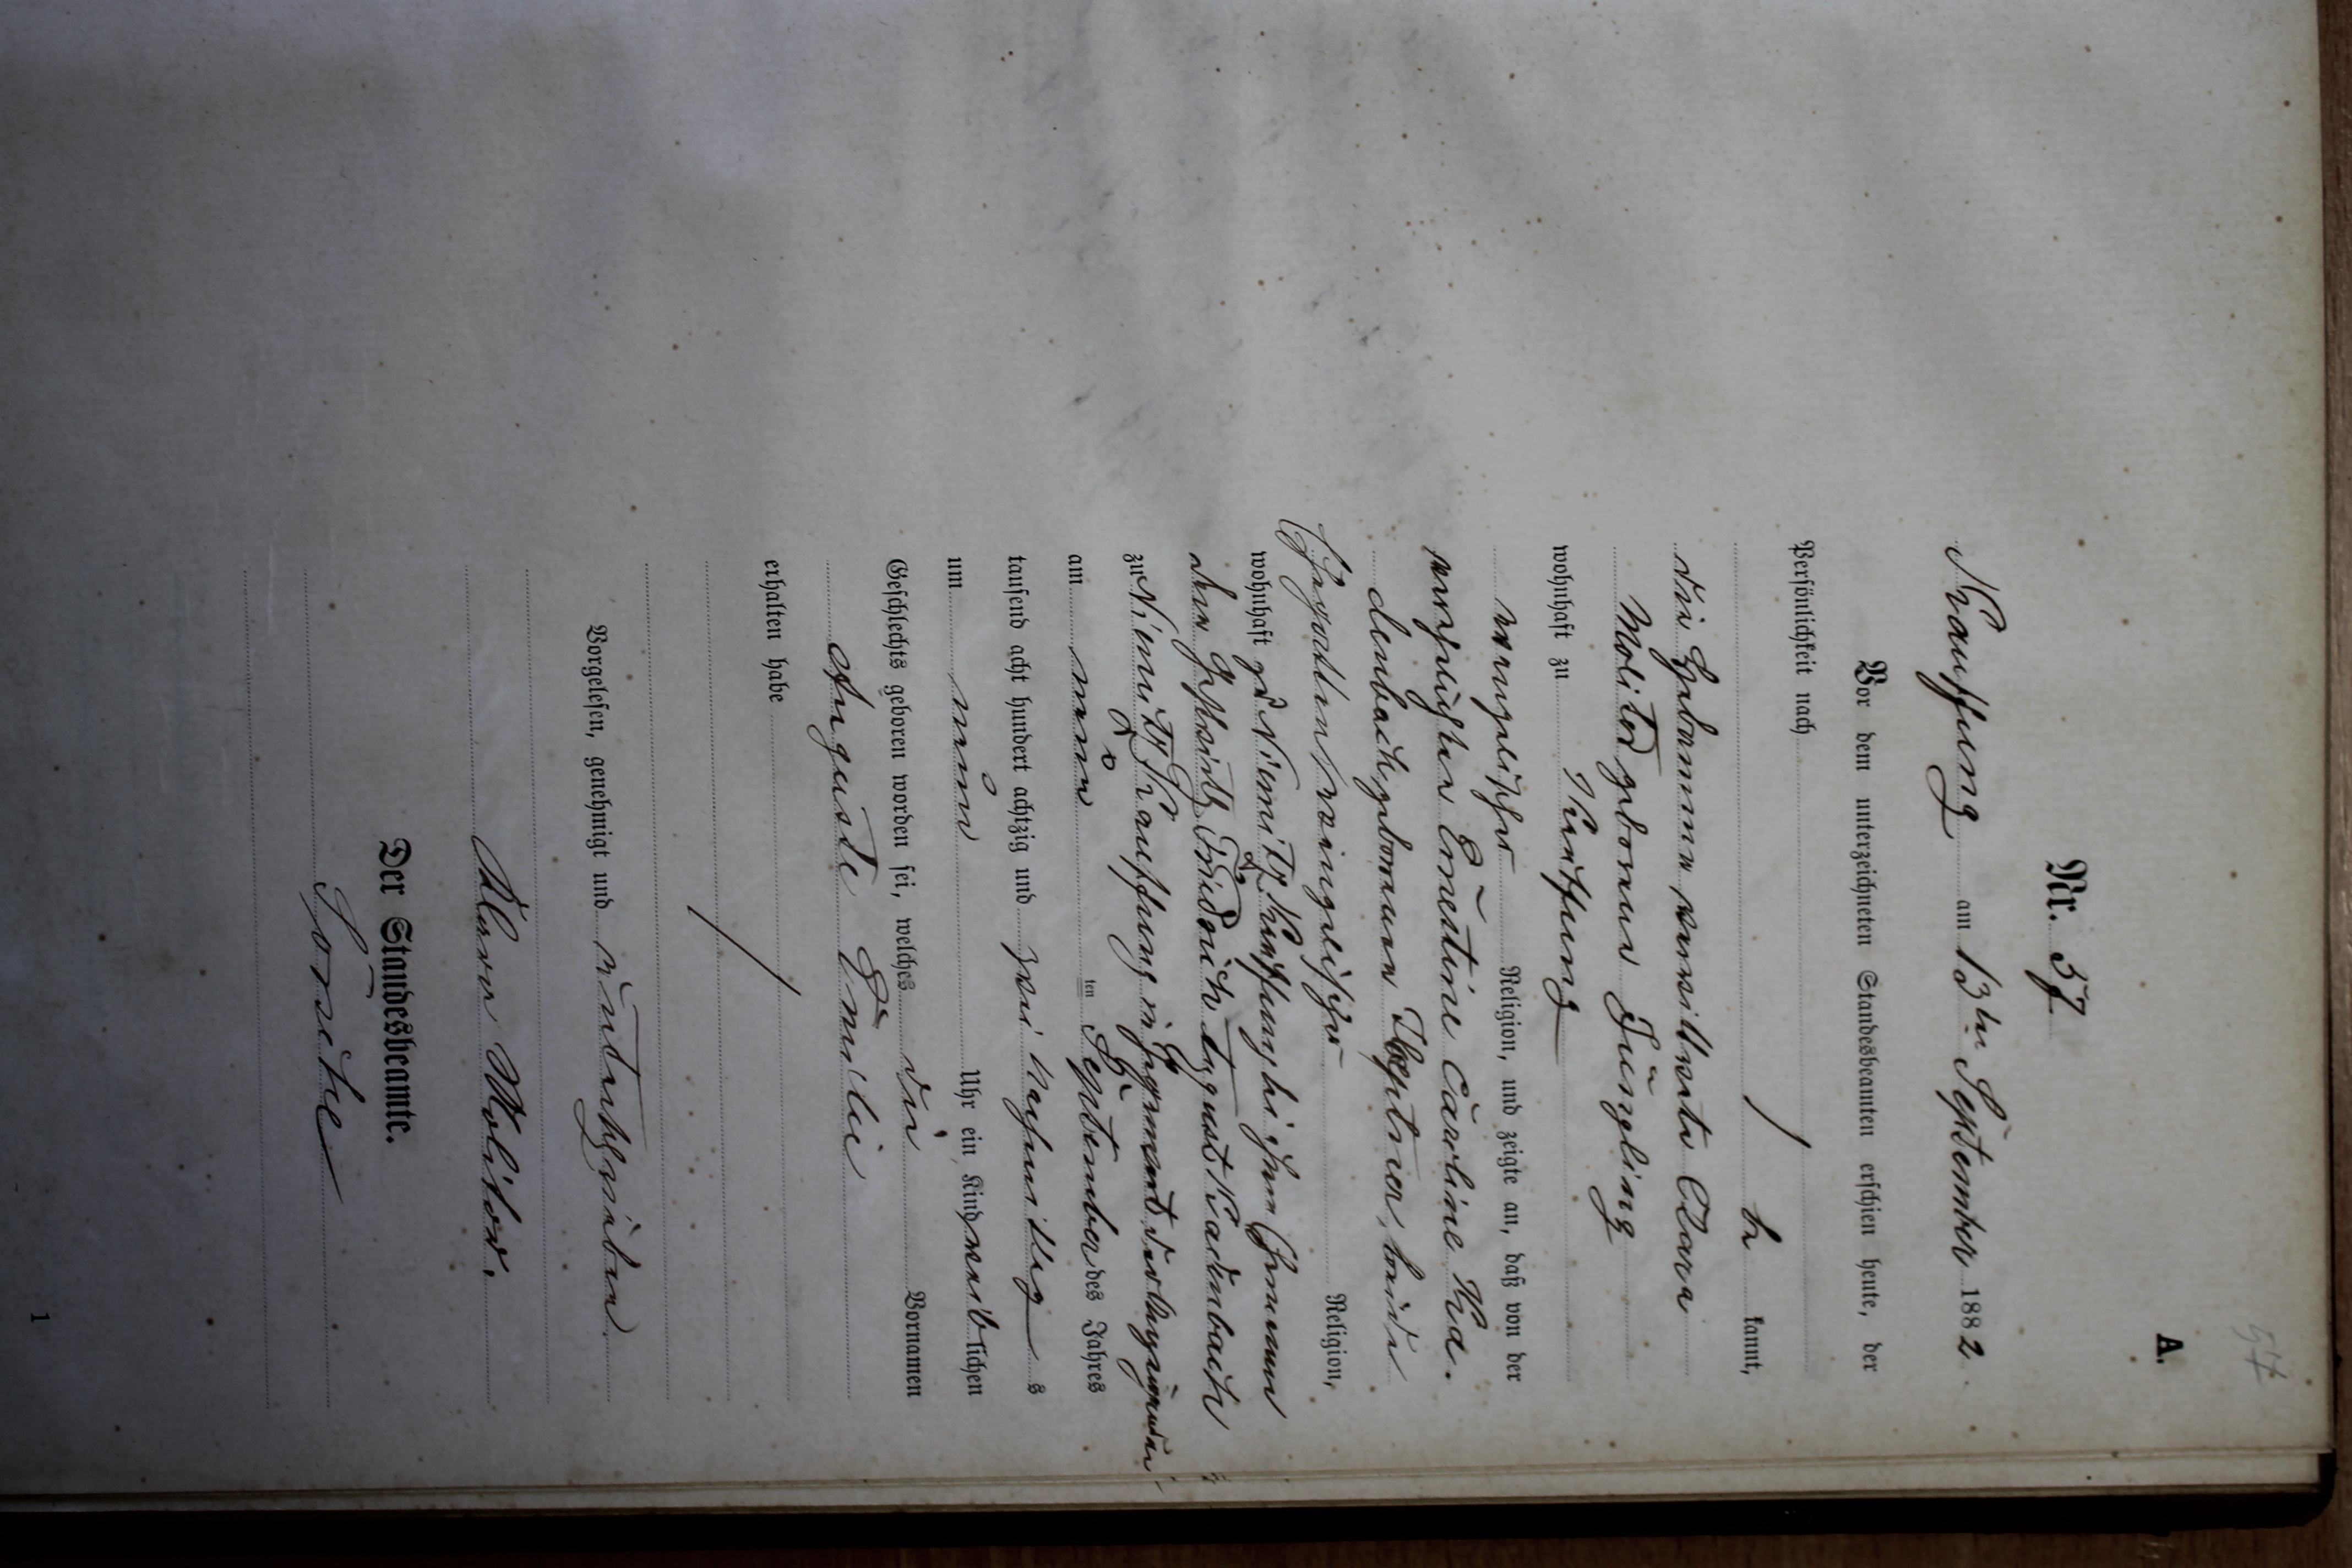 57
A.
Nr. 57
Kauffung am 13ten September 1882.
Vor dem unterzeichneten Standesbeamten erschien heute, der
Persönlichkeit nach
be kannt,
die Hebamme verwittwete Clara
Molitor geborene Jüngling
wohnhaft zu Kauffung
evangelischer Religion, und zeigte an, daß von der
verehelichten Ernestine Caroline Ra-
denbach geborenen Töpfner, beide
evangelischer Religion,
wohnhaft zu Kauffung bei ihrem Ehemann
dem Friedrich August Radenbach
zu Kauffung in
am neun ten September des Jahres
tausend acht hundert achtzig und zwei Nachmittag s
um neun Uhr ein Kind weiblichen
Geschlechts geboren worden sei, welches die Vornamen
Auguste Emilie
erhalten habe
Vorgelesen, genehmigt und unterschrieben
Clara Molitor.
Der Standesbeamte.
1